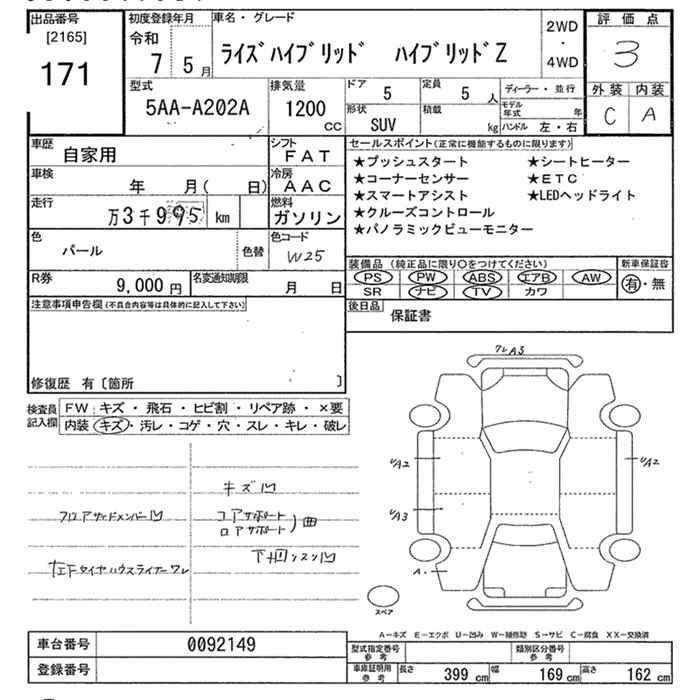 出品番号
[2165]
171
初度登録年月
令和
7 5月
車名・グレード
ライズハイブリッド ハイブリッドZ
2WD
・
4WD
評価点
3
外装 内装
C A
型式
5AA-A202A
排気量
1200
CC
ドア
5
定員
5 人
形状
SUV
積載
kg
ディーラー・並行
モデル年式 年
ハンドル 左・右
車歴
自家用
シフト
FAT
車検
年 月( 日)
冷房
AAC
走行
万3千995 km
燃料
ガソリン
色
パール
色替
色コード
W25
R券
9,000 円
名変通知期限
月 日
セールスポイント(正常に機能するものに限ります)
★プッシュスタート ★シートヒーター
★コーナーセンサー ★ETC
★スマートアシスト ★LEDヘッドライト
★クルーズコントロール
★パノラミックビューモニター
装備品 (純正品に限り○をつけてください)
PS PW ABS エアB AW
SR ナビ TV カワ
新車保証書
有・無
後日品
保証書
注意事項申告欄(不具合内容等は具体的に記入して下さい)
修復歴 有〔箇所 〕
検査員記入欄
FW キズ・飛石・ヒビ割・リペア跡・×要
内装 キズ・汚レ・コゲ・穴・スレ・キレ・破レ
キズ凹
フロアサイドメンバー凹
コアサポート
ロアサポート)曲
左Fタイヤハウスライナーワレ
ワレA3
UA2
UA2
UA3
A・
スペア
A-キズ E-エクボ U-凹み W-補修跡 S-サビ C-腐食 XX-交換済
車台番号
0092149
登録番号
型式指定番号
参考
類別区分番号
参考
車庫証明用
参考
長さ 399 cm 幅 169 cm 高さ 162 cm